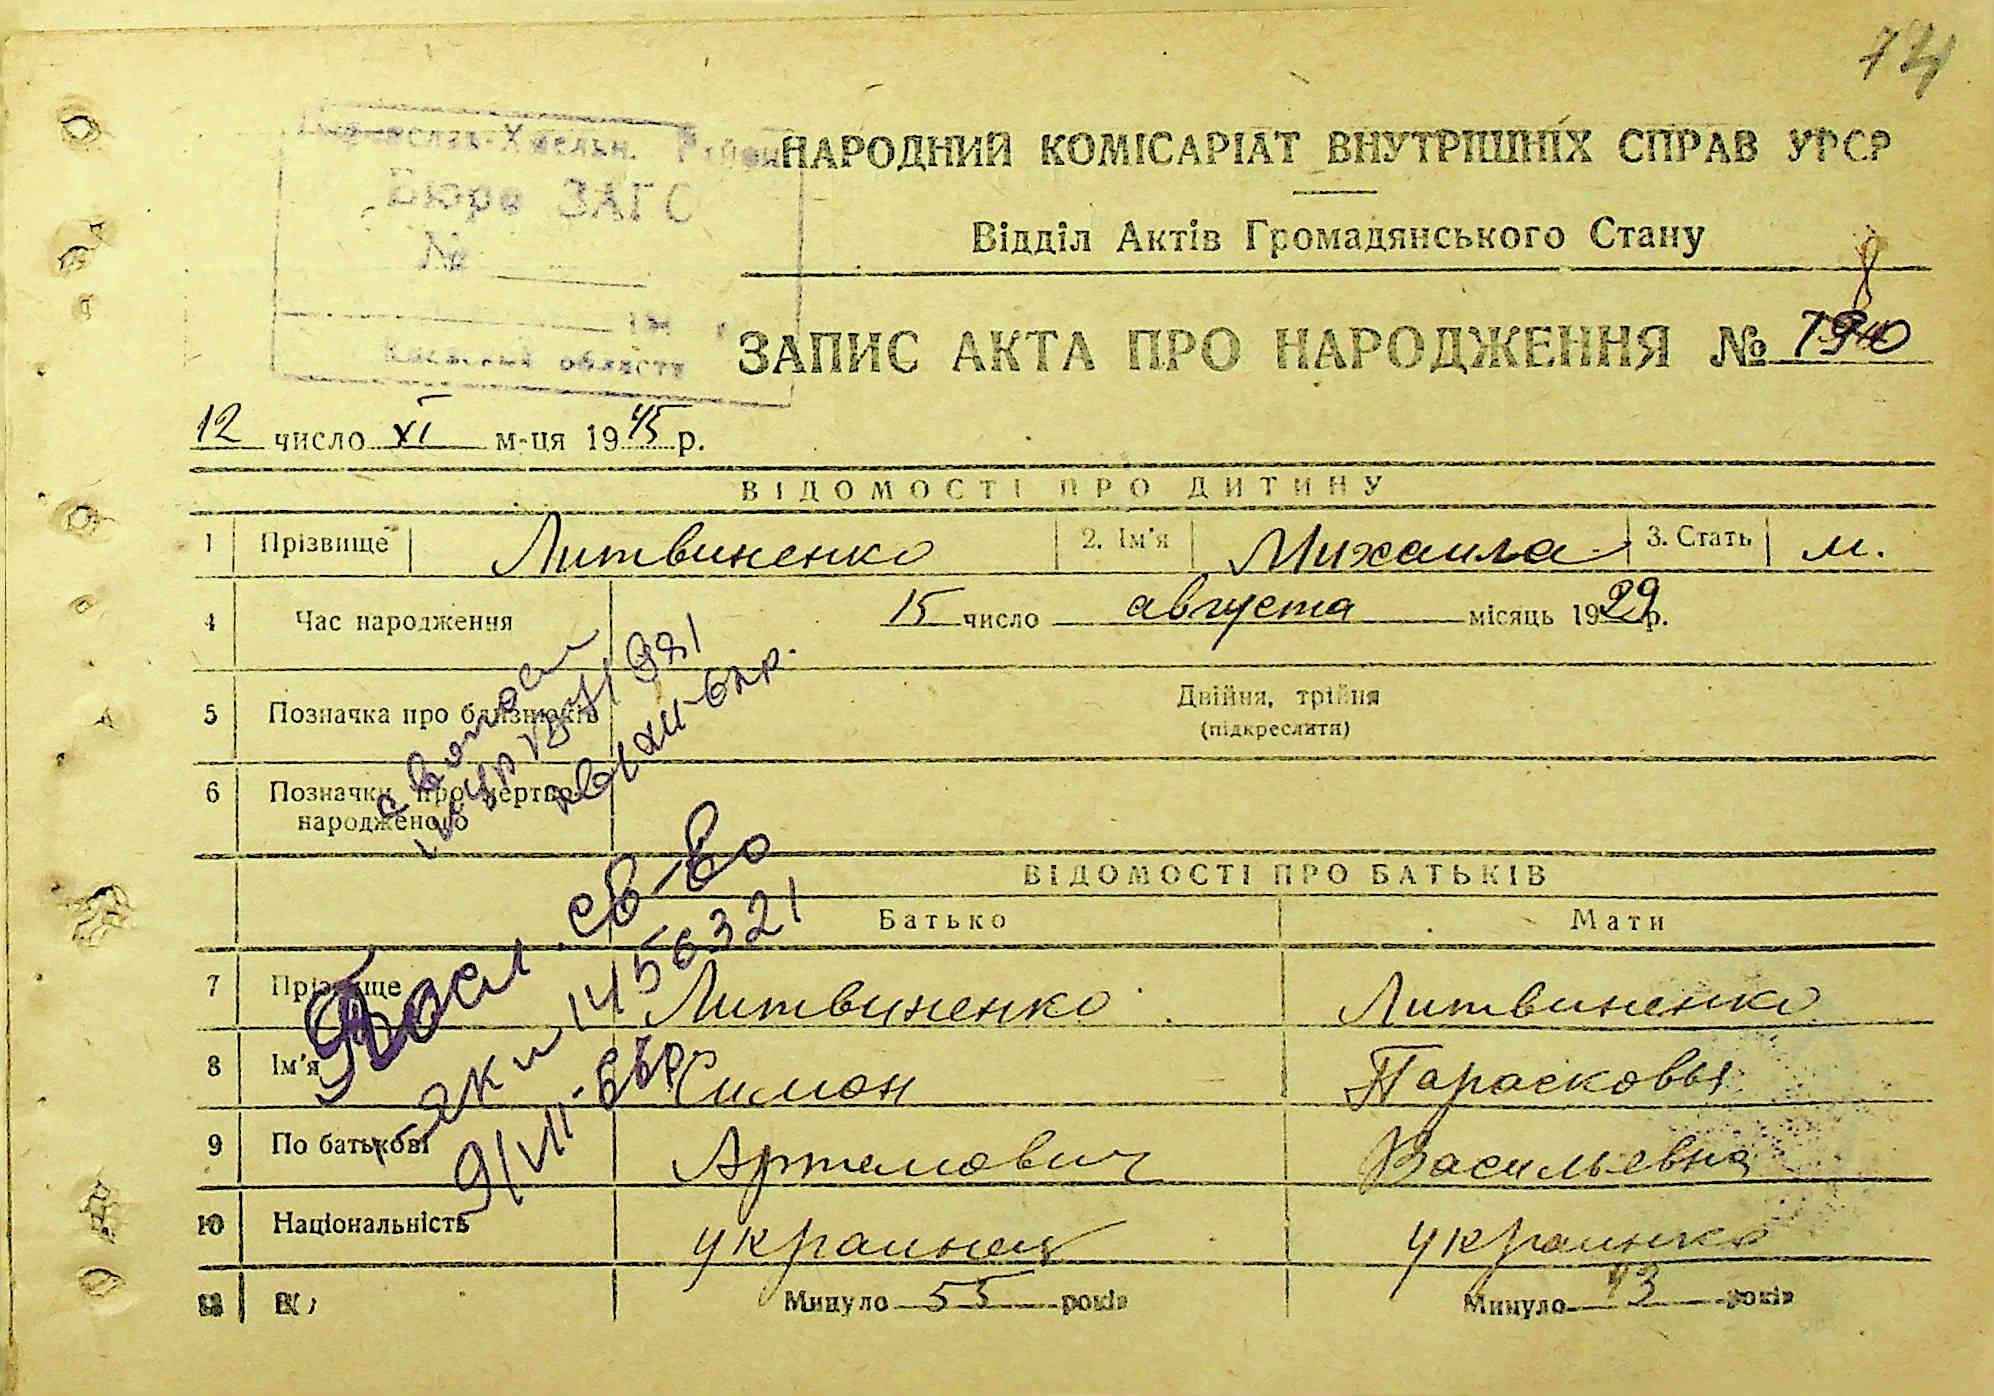 74
Хмельн. Район
Бюро ЗАГС
№
області
НАРОДНИЙ КОМІСАРІАТ ВНУТРІШНІХ СПРАВ УРСР
Відділ Актів Громадянського Стану
ЗАПИС АКТА ПРО НАРОДЖЕННЯ №
12 число XI м-ця 1945 р.
ВІДОМОСТІ ПРО ДИТИНУ
1 Прізвище Литвиненко 2. Ім'я Михаила 3. Стать м.
4 Час народження 15 число августа місяць 1929 р.
5 Позначка про близнюків Двійня, трійня
(підкреслити)
6 Позначки про мертво-
народженого
ВІДОМОСТІ ПРО БАТЬКІВ
Батько Мати
7 Прізвище Литвиненко Литвиненко
8 Ім'я Симон Парасковья
9 По батькові Артемович Васильевна
10 Національність украинец украинка
Минуло 55 років Минуло 43 років
св-во
1456321
9/VII-66р